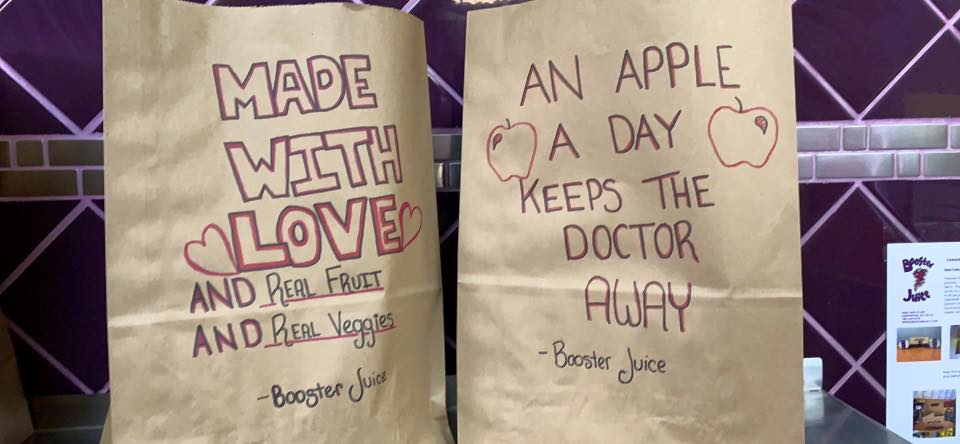 MADE
WITH
LOVE
AND REAL FRUIT
AND REAL Veggies
-Booster Juice
AN APPLE
A DAY
KEEPS THE
DOCTOR
AWAY
-Booster Juice
Booster
Juice